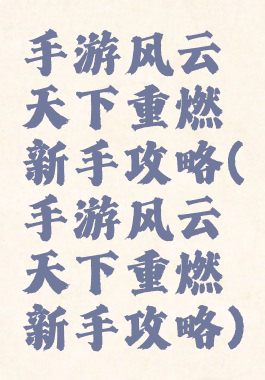 手游风云
天下重燃
新手攻略(
手游风云
天下重燃
新手攻略)